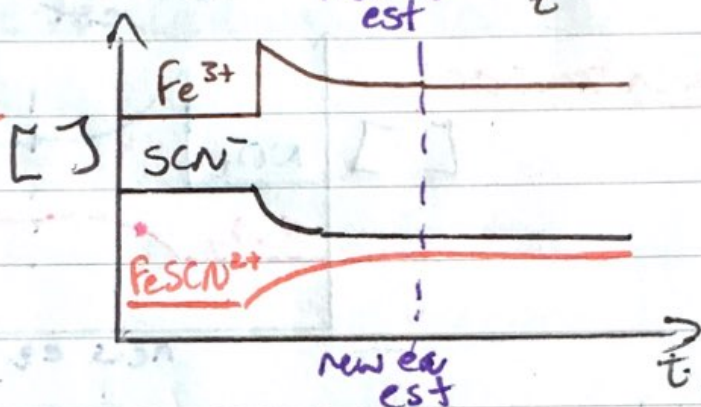 est
t
Fe³⁺
[ ]
SCN⁻
FeSCN²⁺
t
new eq
est